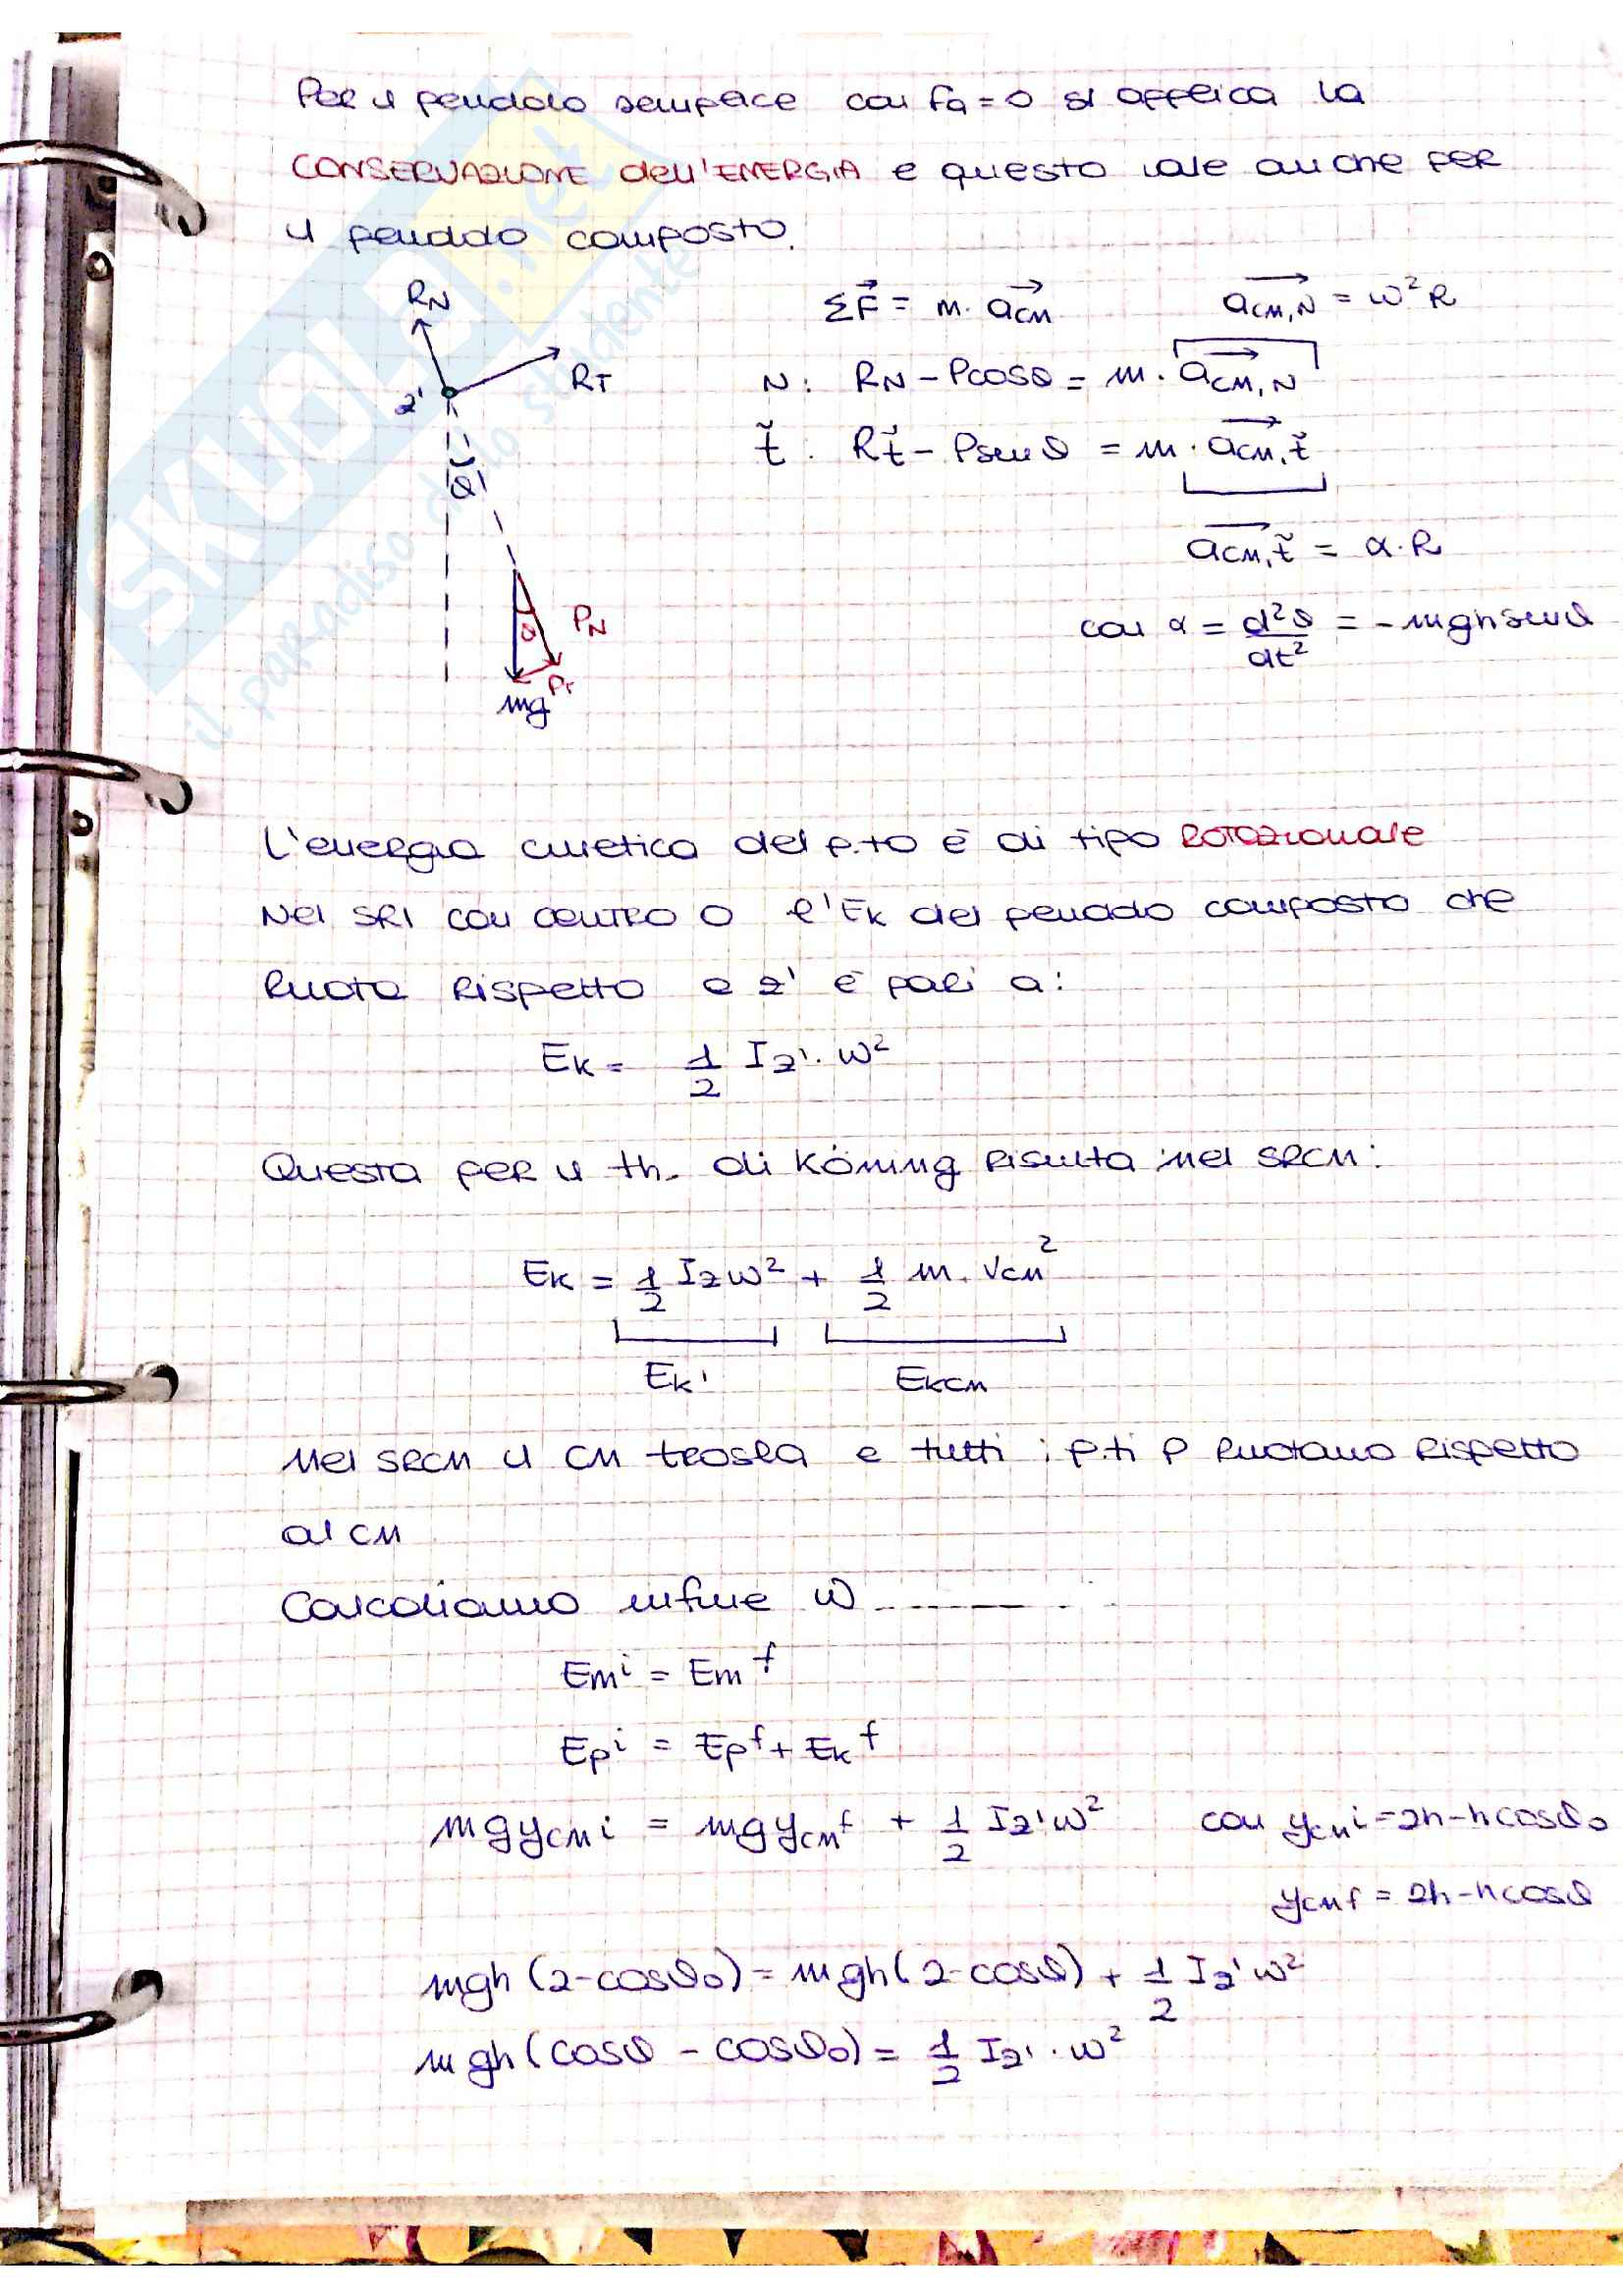 Per il pendolo semplice con Fa = 0 si applica la
CONSERVAZIONE dell'ENERGIA e questo vale anche per
il pendolo composto.
RN
RT
z'
θ
θ
PN
PT
mg
ΣF⃗ = m · a⃗CM
a⃗CM,N = ω² R
N: RN - Pcosθ = m · a⃗CM,N
t̃ : Rt̃ - Psenθ = m · a⃗CM,t̃
a⃗CM,t̃ = α · R
con α = d²θ/dt² = - mgh senθ
L'energia cinetica del p.to è di tipo ROTAZIONALE
Nel SRI con CENTRO O l'Ek del pendolo composto che
Ruota Rispetto a z' è pari a:
Ek = 1/2 Iz' · ω²
Questa per il th. di Köning Risulta nel SRCM:
Ek = 1/2 Iz ω² + 1/2 m · VCM²
Ek'
EkCM
Nel SRCM il CM trasla e tutti i p.ti P Ruotano Rispetto
al CM
Calcoliamo infine ω
Emⁱ = Emᶠ
Epⁱ = Epᶠ + Ekᶠ
mgyCMi = mgyCMf + 1/2 Iz' ω² con yCMi = 2h - hcosθ₀
yCMf = 2h - hcosθ
mgh (2 - cosθ₀) = mgh (2 - cosθ) + 1/2 Iz' ω²
mgh (cosθ - cosθ₀) = 1/2 Iz' · ω²
SKUOLA.net
il paradiso dello studente